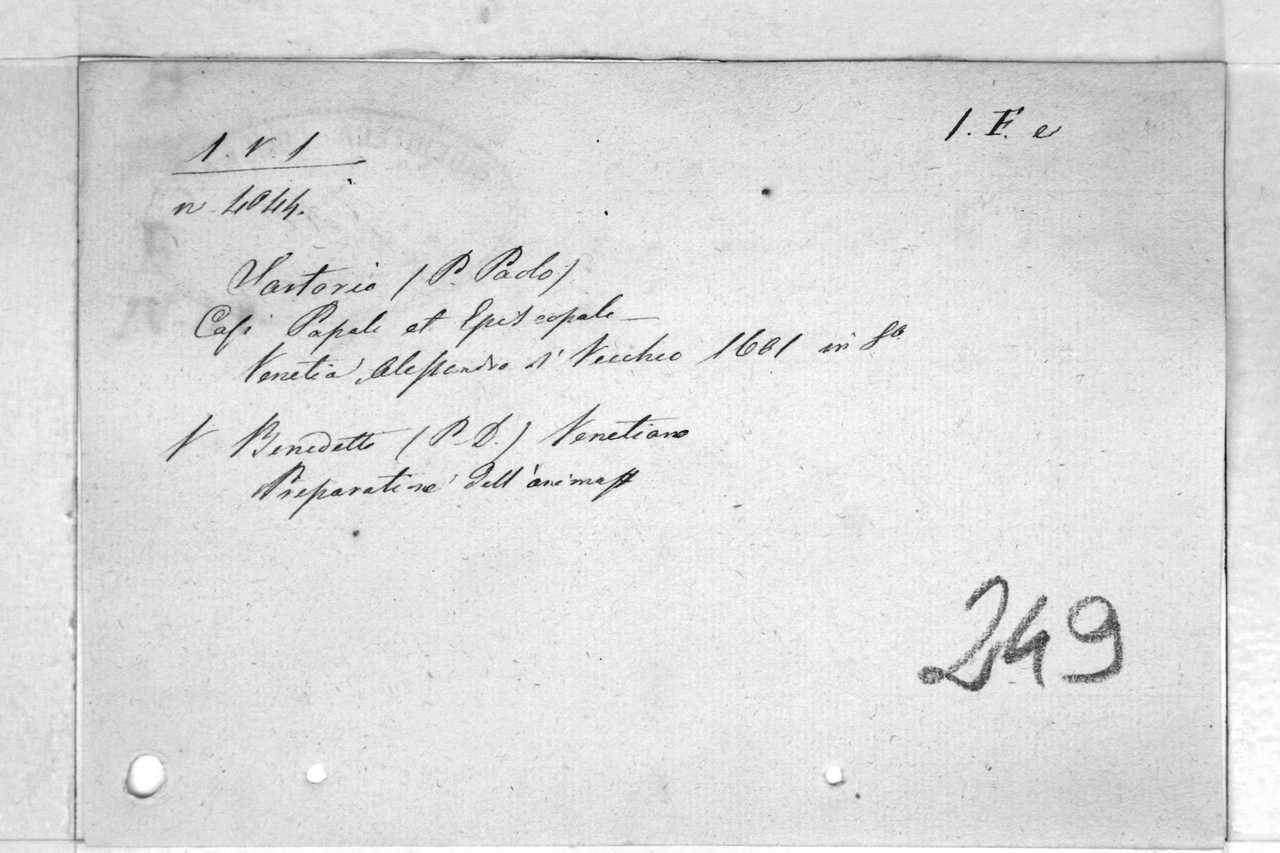 1. V. 1
1. F. e
n. 4044.
Sartorio (P. Paolo)
Casi Papale et Episcopale
Venetia, Alessandro d' Vecchio 1601 in 8º
V Benedetto (P. D.) Venetiano
Preparatione dell'anima
249